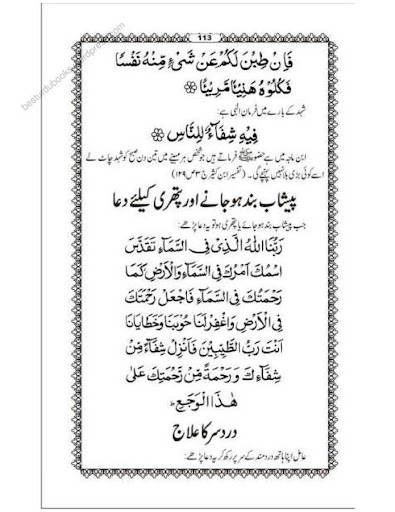 113
فَاِنْ طِبْنَ لَكُمْ عَنْ شَیْءٍ مِّنْهُ نَفْسًا
فَكُلُوْهُ هَنِیْٓئًا مَّرِیْٓئًا
شہد کے بارے میں فرمان الٰہی ہے:
فِیْهِ شِفَآءٌ لِّلنَّاسِ
ابن ماجہ میں ہے حضور ﷺ فرماتے ہیں جو شخص ہر مہینے میں تین دن صبح کو شہد چاٹ لے
اسے کوئی بڑی بلا نہیں پہنچے گی۔ (تفسیر ابن کثیر ج ۳ ص ۱۲۹)
پیشاب بند ہو جانے اور پتھری کیلئے دعا
جب پیشاب بند ہو جائے یا پتھری ہو تو یہ دعا پڑھے:
رَبُّنَا اللّٰهُ الَّذِیْ فِی السَّمَآءِ تَقَدَّسَ
اسْمُكَ اَمْرُكَ فِی السَّمَآءِ وَالْاَرْضِ كَمَا
رَحْمَتُكَ فِی السَّمَآءِ فَاجْعَلْ رَحْمَتَكَ
فِی الْاَرْضِ وَاغْفِرْلَنَا حُوْبَنَا وَخَطَایَانَا
اَنْتَ رَبُّ الطَّیِّبِیْنَ فَاَنْزِلْ شِفَآءً مِّنْ
شِفَآءِكَ وَ رَحْمَةً مِّنْ رَّحْمَتِكَ عَلٰی
هٰذَا الْوَجَعِ ط
درد سر کا علاج
عامل اپنا ہاتھ درد مند کے سر پر رکھ کر یہ دعا پڑھے:
besturdubooks.wordpress.com